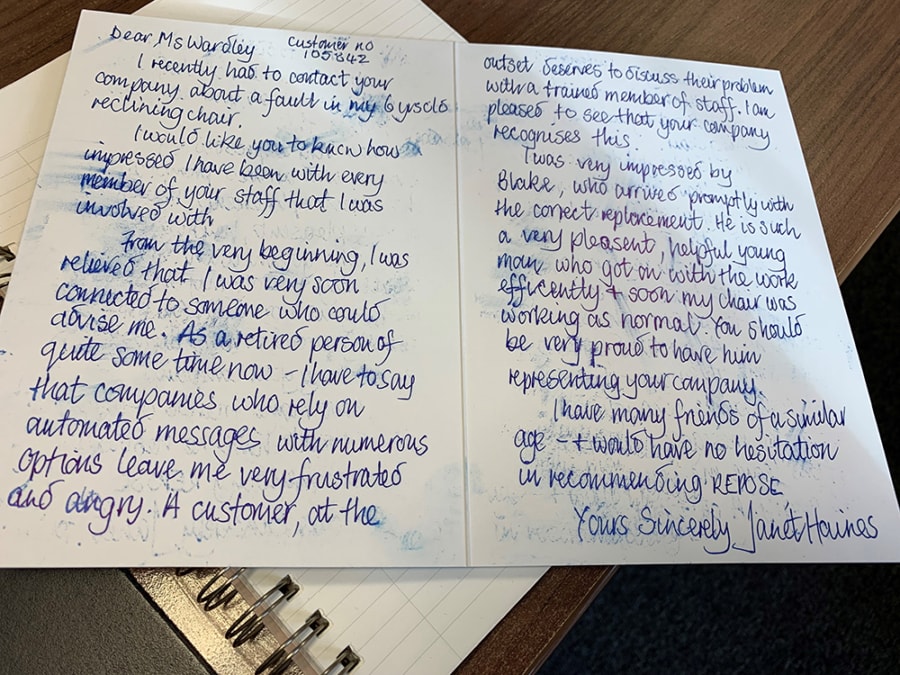 Dear Ms Wardley
Customer no
105842
I recently had to contact your
company about a fault in my 6 yrs old
reclining chair.
I would like you to know how
impressed I have been with every
member of your staff that I was
involved with.
From the very beginning, I was
relieved that I was very soon
connected to someone who could
advise me. As a retired person of
quite some time now - I have to say
that companies who rely on
automated messages with numerous
options leave me very frustrated
and angry. A customer, at the
outset deserves to discuss their problem
with a trained member of staff. I am
pleased to see that your company
recognises this.
I was very impressed by
Blake, who arrived promptly with
the correct replacement. He is such
a very pleasent, helpful young
man who got on with the work
efficently + soon my chair was
working as normal. You should
be very proud to have him
representing your company.
I have many friends of a similar
age - + would have no hesitation
in recommending REPOSE
Yours Sincerely Janet Haines